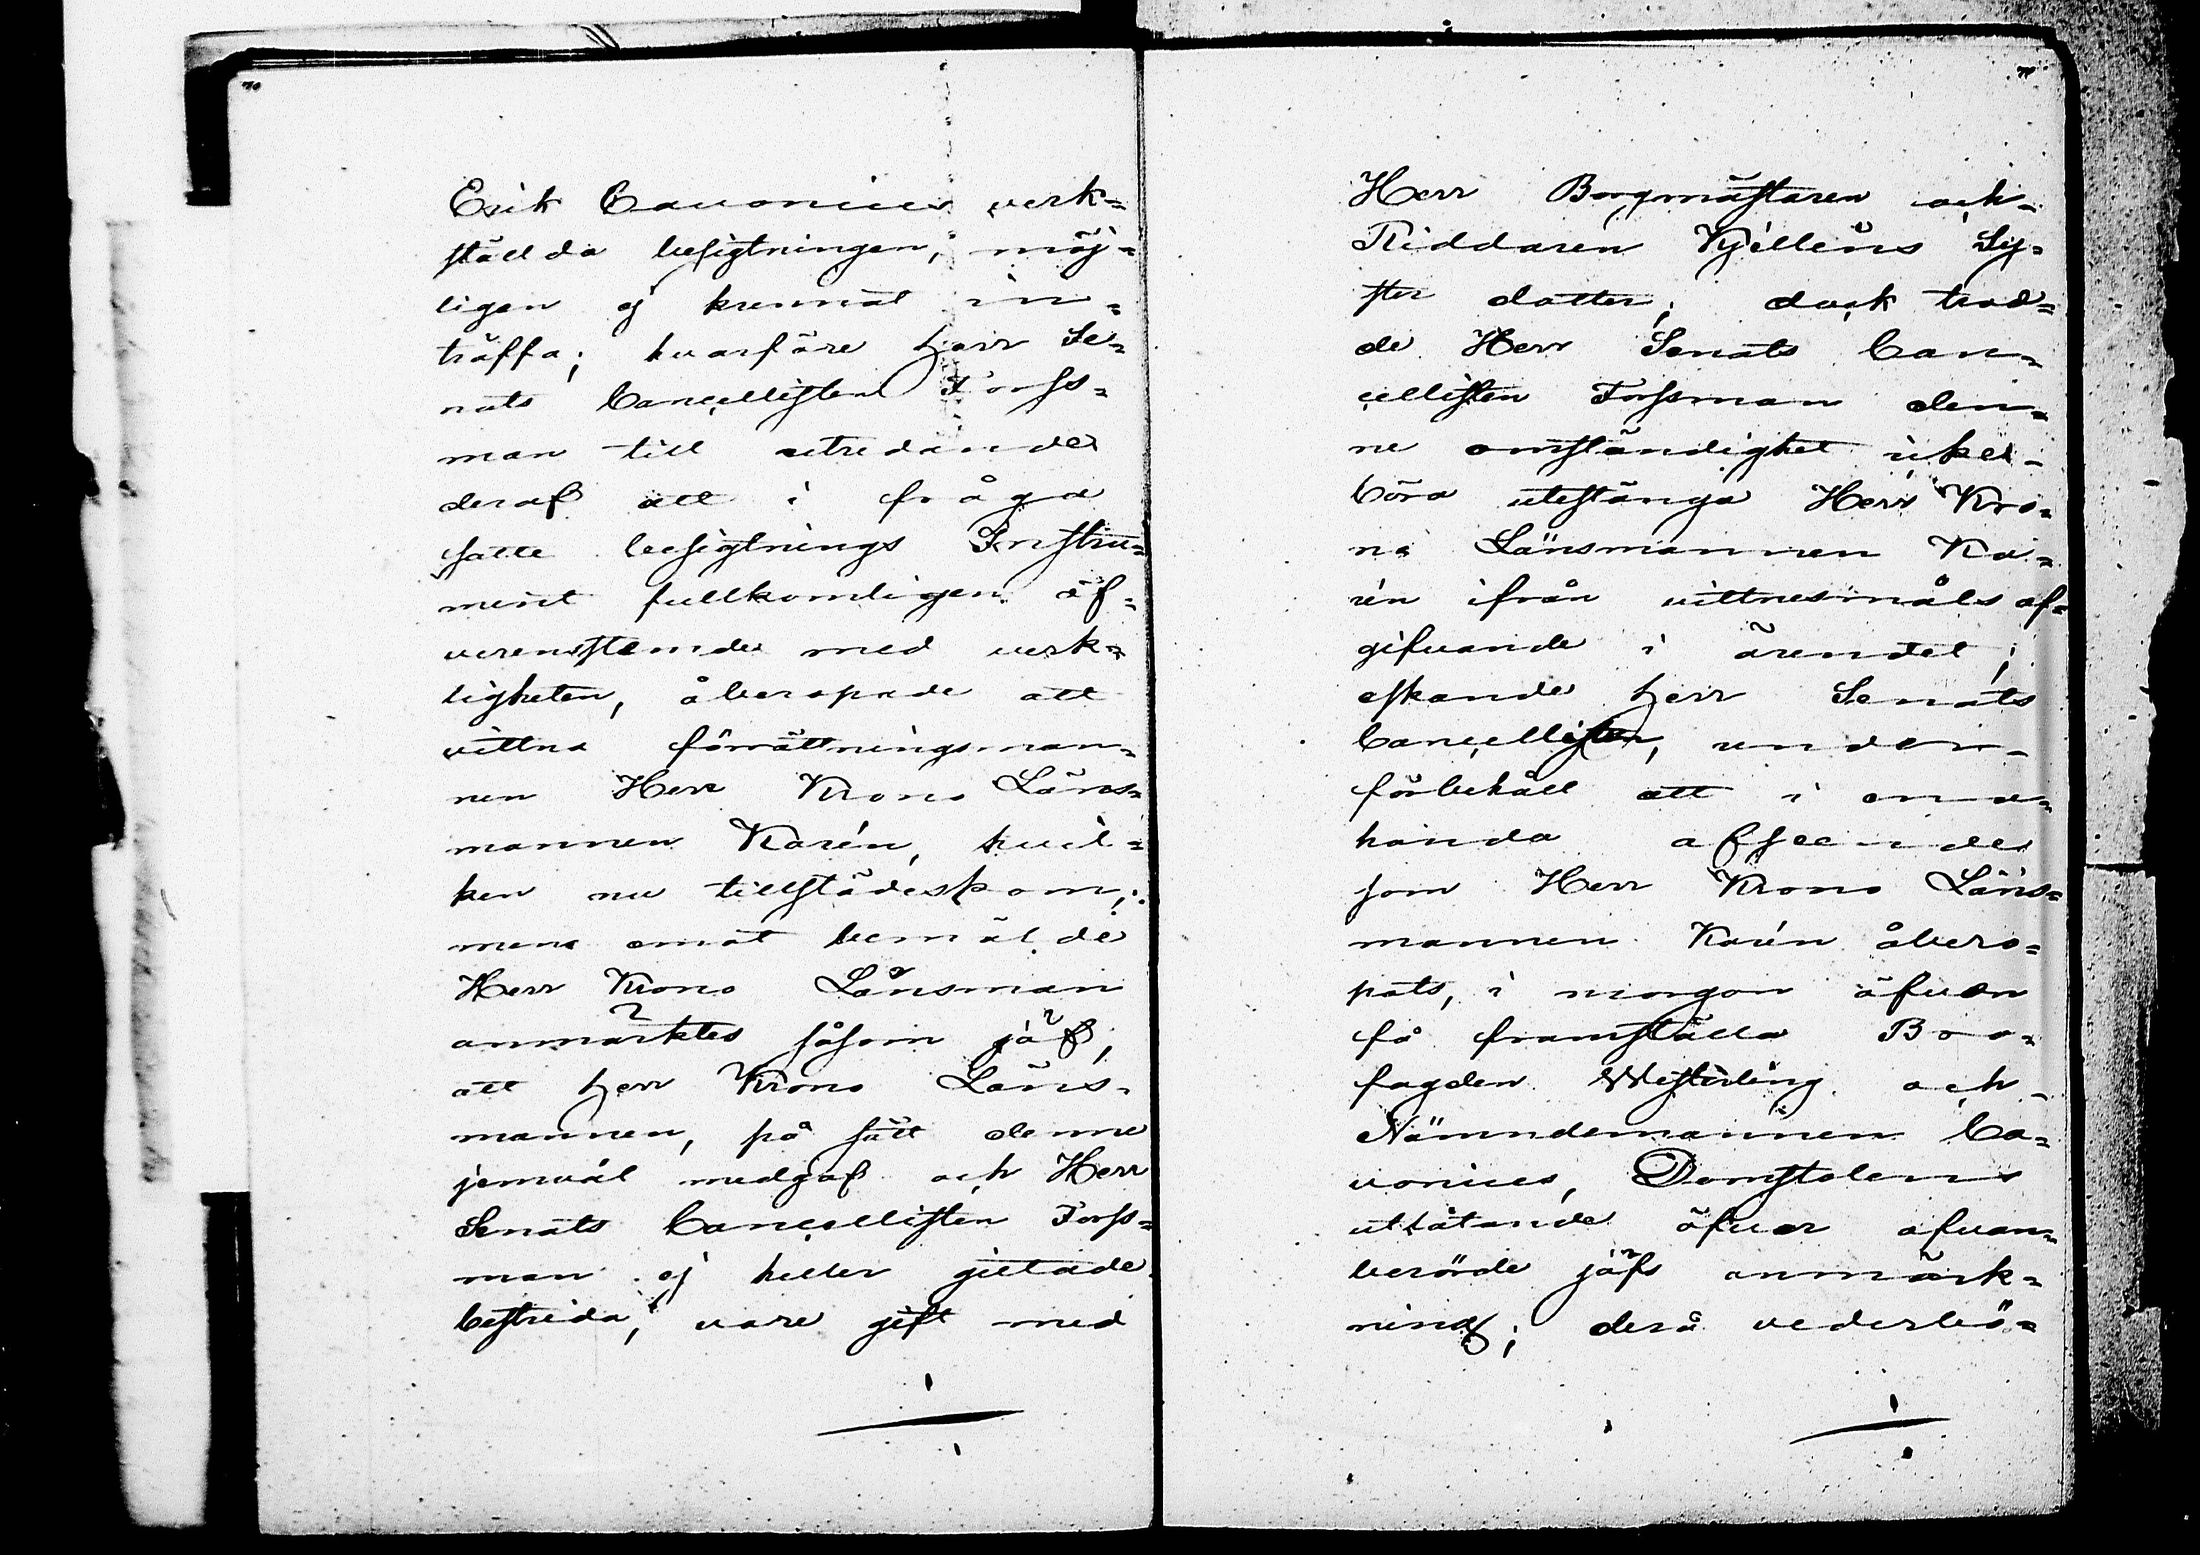 Erik Cavonius verk=
stälda besigtningen, möj=
ligen ej kunnat in=
träffa; hvarföre herr Se=
nats Cancellisten Forss=
man till utredande
deraf att i fråga
satte besigtnings Instru=
ment fullkomligen öf=
verensstemde med verk=
ligheten, åberopade att
vittna förrättningsman=
nen Herr Krono Läns=
mannen Karén, hvil=
ken nu tillstädeskom;
men emot bemälde
Herr Krono Länsman
anmärktes såsom jäf,
att herr Krono Läns=
mannen, på sätt denne
jemväl medgaf och Herr
Senats Cancellisten Forss=
man ej heller gittade
bestrida, vore gift med
Herr Borgmästaren och
Riddaren Kjilléns Sy=
ster dotter; dock trod=
de Herr Senats Can=
cellisten Forssman den=
ne omständighet icke
böra utestänga Herr Kro=
no Länsmannen Ka=
rén ifrån vittnesmåls af=
gifvande i ärendet;
eskande herr Senats
Cancellisten, under
förbehåll att i ena=
handa afseende
som Herr Krono Läns=
mannen Karén åbero=
pats, i morgon äfven
få framställa Bro=
fogden Westerling och
Nämndemannen Ca=
vonius, Domstolens
utlåtande öfver ofvan=
berörde jäfs anmärk=
ning; derå vederbö=